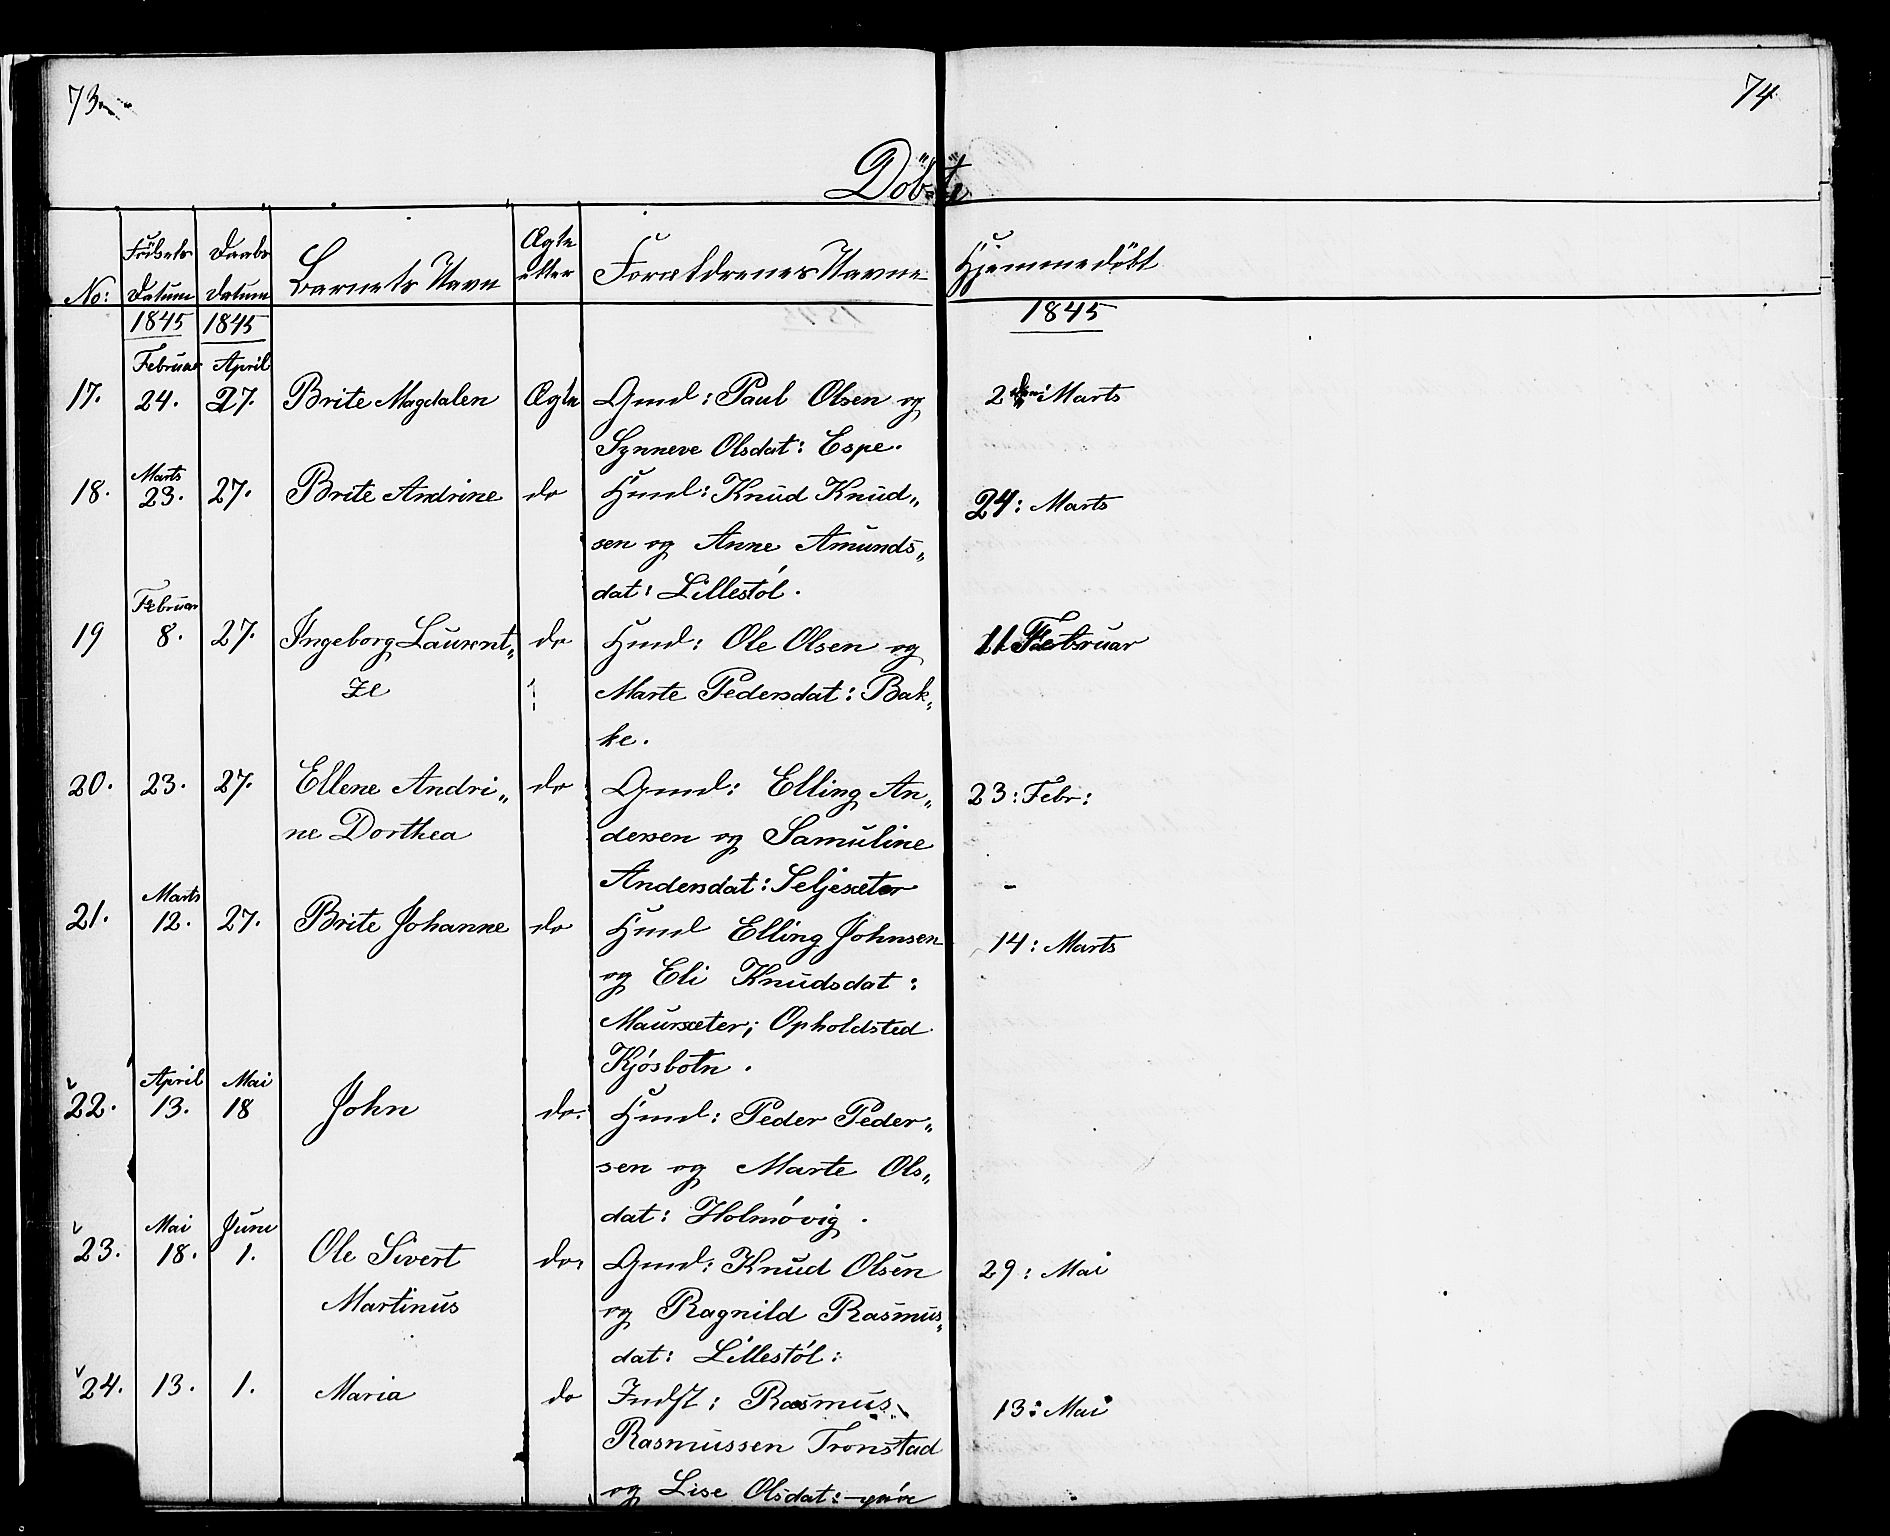 73.
74
Döbte
No:
Födsels
Datum
Daabs
Datum
Barnets Navn
Ægte
etter
Forældrenes Navne
Hjemmedöbt
1845
1845
1845
Februar
April
17.
24.
27.
Brite Magdalen
Ægte
Gmd: Paul Olsen og
Synneve Olsdat: Espe.
2den: Marts
Marts
18.
23.
27.
Brite Andrine
do
Hmd: Knud Knud„
sen og Anne Amunds„
dat: Lillestöl.
24: Marts
Februar
19
8.
27.
Ingeborg Laurent„
ze
do
Hmd: Ole Olsen og
Marte Pedersdat: Bak„
ke.
11 Februar
20.
23.
27.
Ellene Andri„
ne Dorthea
do
Gmd: Elling An„
dersen og Samuline
Andersdat: Seljesæter
23: Febr:
Marts
21.
12.
27.
Brite Johanne
do
Hmd Elling Johnsen
og Eli Knudsdat:
Maursæter; Opholdsted
Kjósbotn.
14: Marts
April
Mai
22.
13.
18
John
do:
Hmd: Peder Peder„
sen og Marte Ols„
dat: Holmóvig.
Mai
Juni
23.
18.
1.
Ole Sivert
Martinus
do.
Gmd: Knud Olsen
og Ragnild Rasmus„
dat: Lillestól:
29: Mai
24.
13.
1.
Maria
do
Indst: Rasmus
Rasmussen Tronstad
og Lise Olsdat:
13: Mai